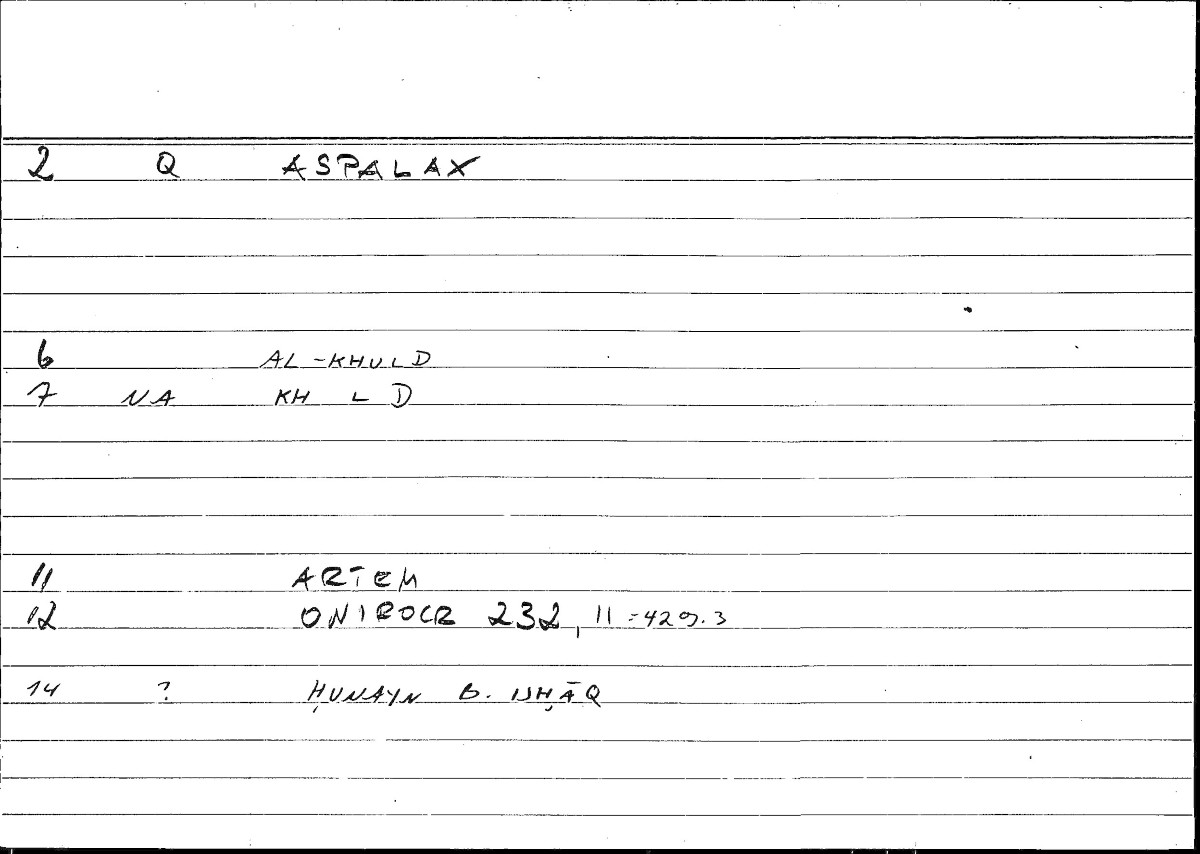 2 Q ASPALAX
6 AL-KHULD
7 NA KH L D
11 ARTEM
12 ONIROCR 232, 11 = 429.3
14 ? ḤUNAYN B. ISḤĀQ